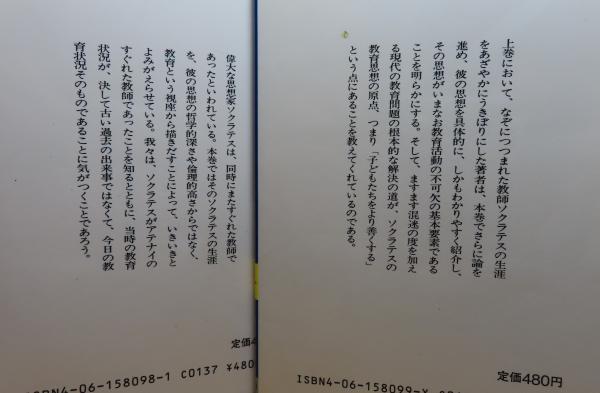 上巻において、なぞにつつまれた教師ソクラテスの生涯
をあざやかにうきぼりにした著者は、本巻でさらに論を
進め、彼の思想を具体的に、しかもわかりやすく紹介し、
その思想がいまなお教育活動の不可欠の基本要素である
ことを明らかにする。そして、ますます混迷の度を加え
る現代の教育問題の根本的な解決の道が、ソクラテスの
教育思想の原点、つまり「子どもたちをより善くする」
という点にあることを教えてくれているのである。
定価480円
ISBN4-06-158099-X
偉大な思想家ソクラテスは、同時にまたすぐれた教師で
あったといわれている。本巻ではそのソクラテスの生涯
を、彼の思想の哲学的深さや倫理的高さからではなく、
教育という視座から描きだすことによって、いきいきと
よみがえらせている。我々は、ソクラテスがアテナイの
すぐれた教師であったことを知るとともに、当時の教育
状況が、決して古い過去の出来事ではなくて、今日の教
育状況そのものであることに気がつくことであろう。
定価4
ISBN4-06-158098-1 C0137 ¥480